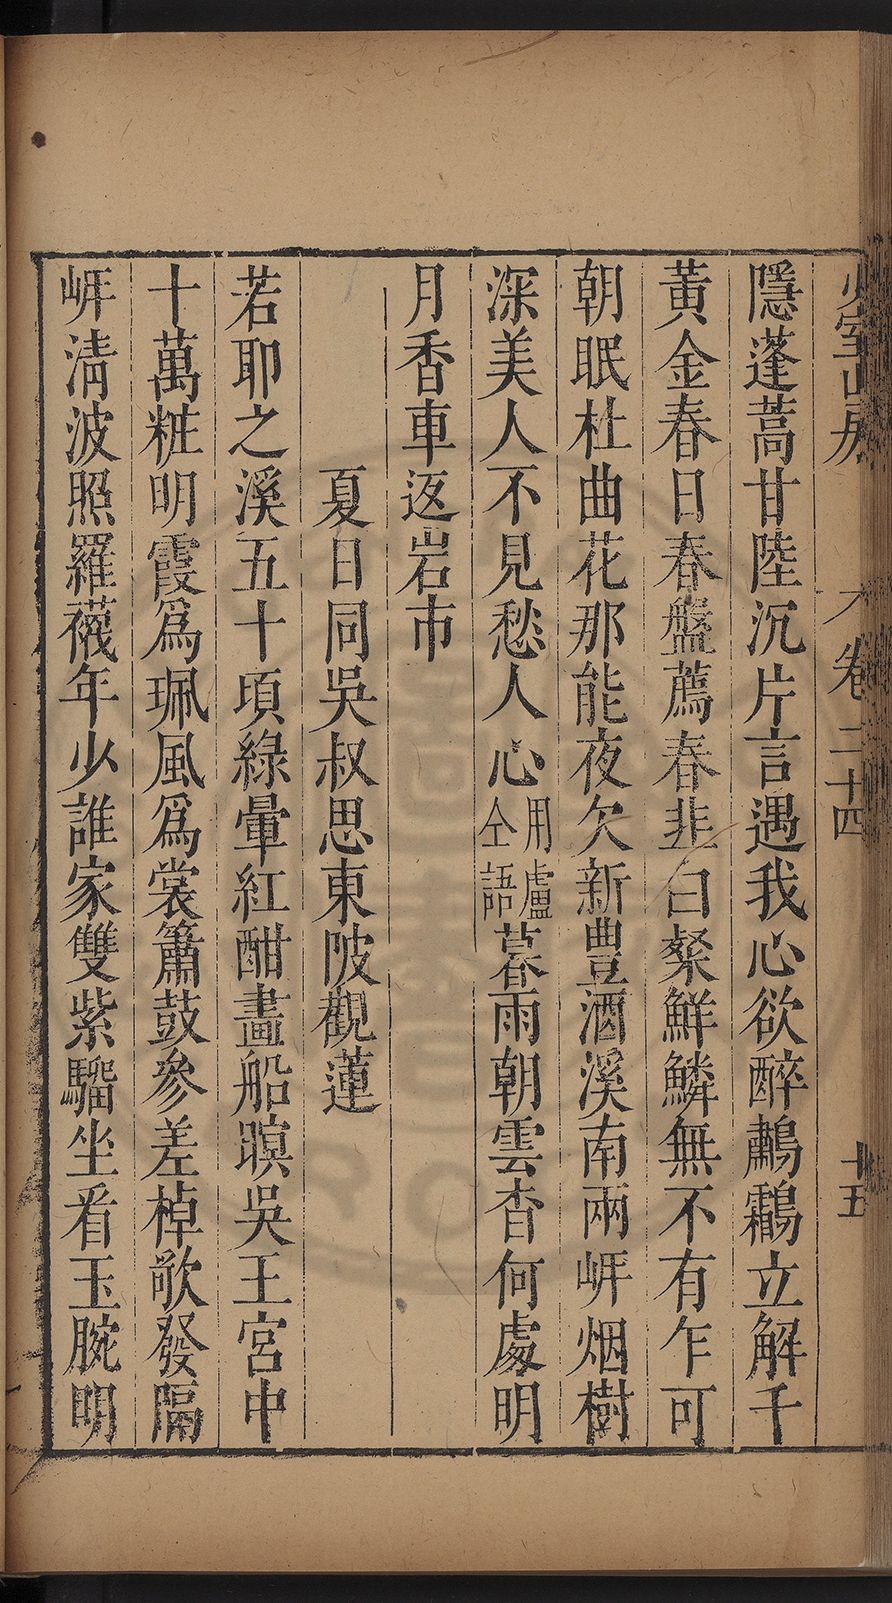 少室山房 卷二十四 十五
隱蓬蒿甘陸沉片言遇我心欲醉鷫鸘立解千
黃金春日春盤薦春韭白粲鮮鱗無不有乍可
朝眠杜曲花那能夜欠新豊酒溪南兩岍烟樹
深美人不見愁人心用盧仝語暮雨朝雲杳何處明
月香車返岩市
夏日同吳叔思東陂觀蓮
若耶之溪五十頃綠暈紅酣畫船暝吳王宮中
十萬粧明霞爲珮風爲裳簫鼓參差棹歌發隔
岍清波照羅襪年少誰家雙紫騮坐看玉腕明